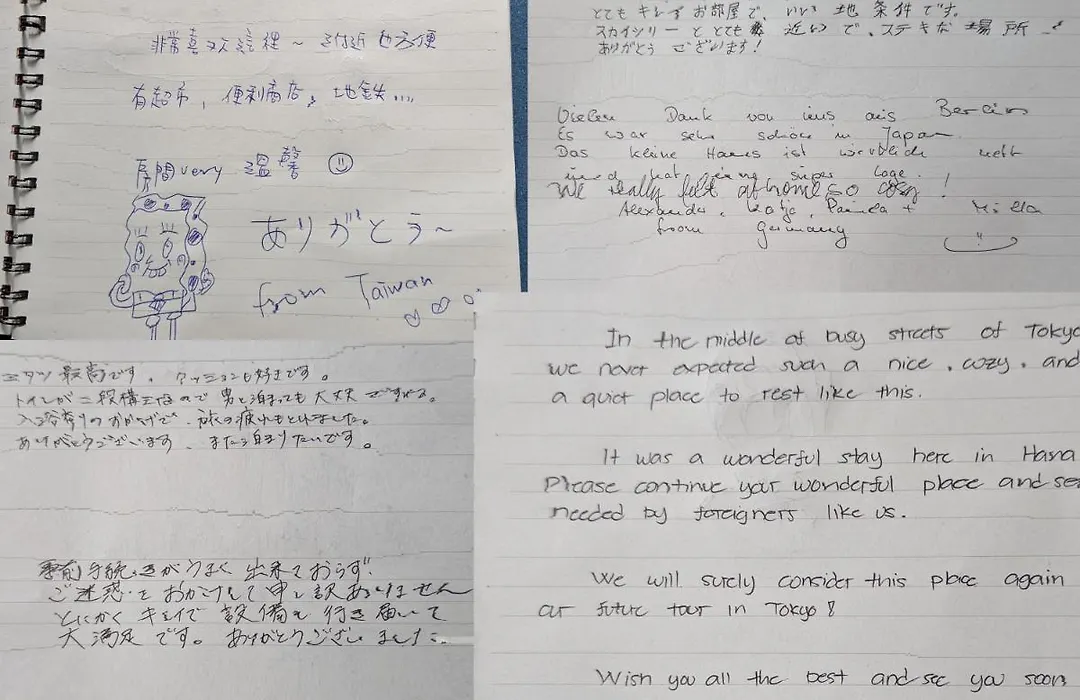 非常喜欢這裡～附近也方便
有超市，便利商店，地鉄...
房間very 温馨
ありがとう～
from Taiwan
とてもキレイなお部屋で、いい地条件です。
スカイツリーととても近いで、ステキな場所
ありがとうございます！
Vielen Dank von uns aus Berlin
Es war sehr schön in Japan.
Das kleine Haus ist wirklich nett
und hat eine super Lage.
We really felt at home so cosy!
Alexander, Katja, +
from Germany
最高です。クッションも好きです。
トイレが二段構えなので男と泊まっても大丈夫
入浴剤のおかげで、旅の疲れもとれました。
ありがとうございます、また泊まりたいです。
事前手続きがうまく出来ておらず、
ご迷惑をおかけして申し訳ありません
とにかくキレイで設備も行き届いて
大満足です。ありがとうございました
In the middle of busy streets of Tokyo
we never expected such a nice, cozy, and
a quiet place to rest like this.
It was a wonderful stay here in Hana
Please continue your wonderful place and
needed by foreigners like us.
We will surely consider this place again
our future tour in Tokyo!
Wish you all the best and see you soon